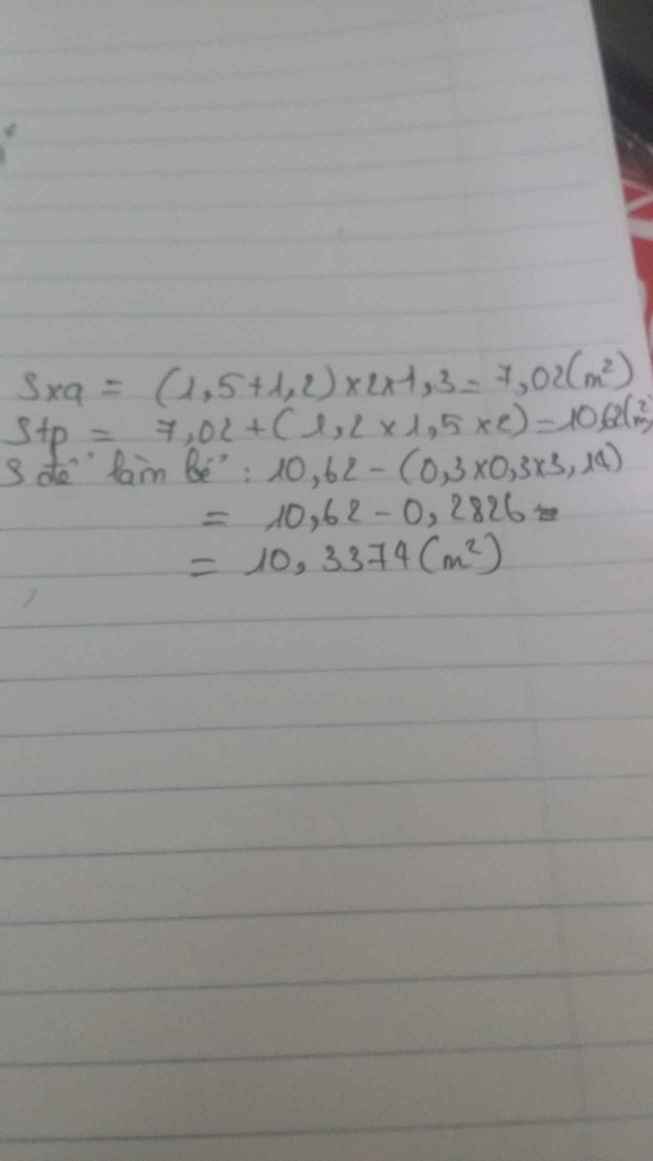 Sxq = (1,5+1,2)×2×1,3=7,02(m²)
Stp = 7,02+(1,2×1,5×2)=10,62(m²)
S để làm bể : 10,62-(0,3×0,3×3,14)
= 10,62-0,2826
= 10,3374(m²)